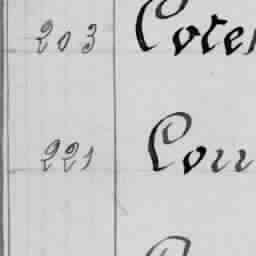 203 Cotes
221 Cou